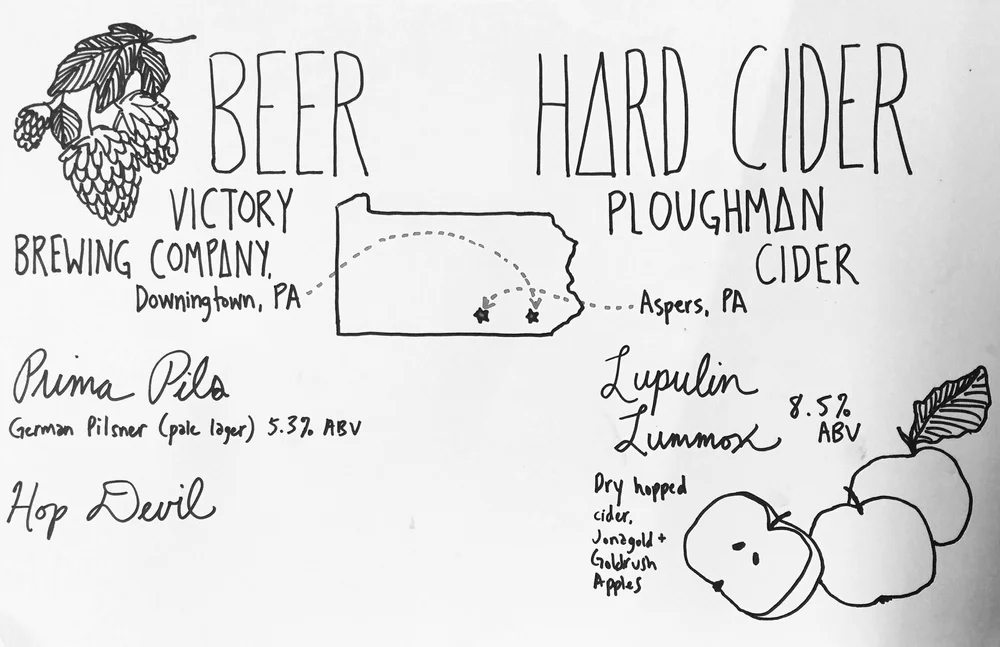 BEER
VICTORY
BREWING COMPANY,
Downingtown, PA
Prima Pils
German Pilsner (pale lager) 5.3% ABV
Hop Devil
HARD CIDER
PLOUGHMAN
CIDER
Aspers, PA
Lupulin
Lummox
8.5%
ABV
Dry hopped
cider,
Jonagold +
Goldrush
Apples